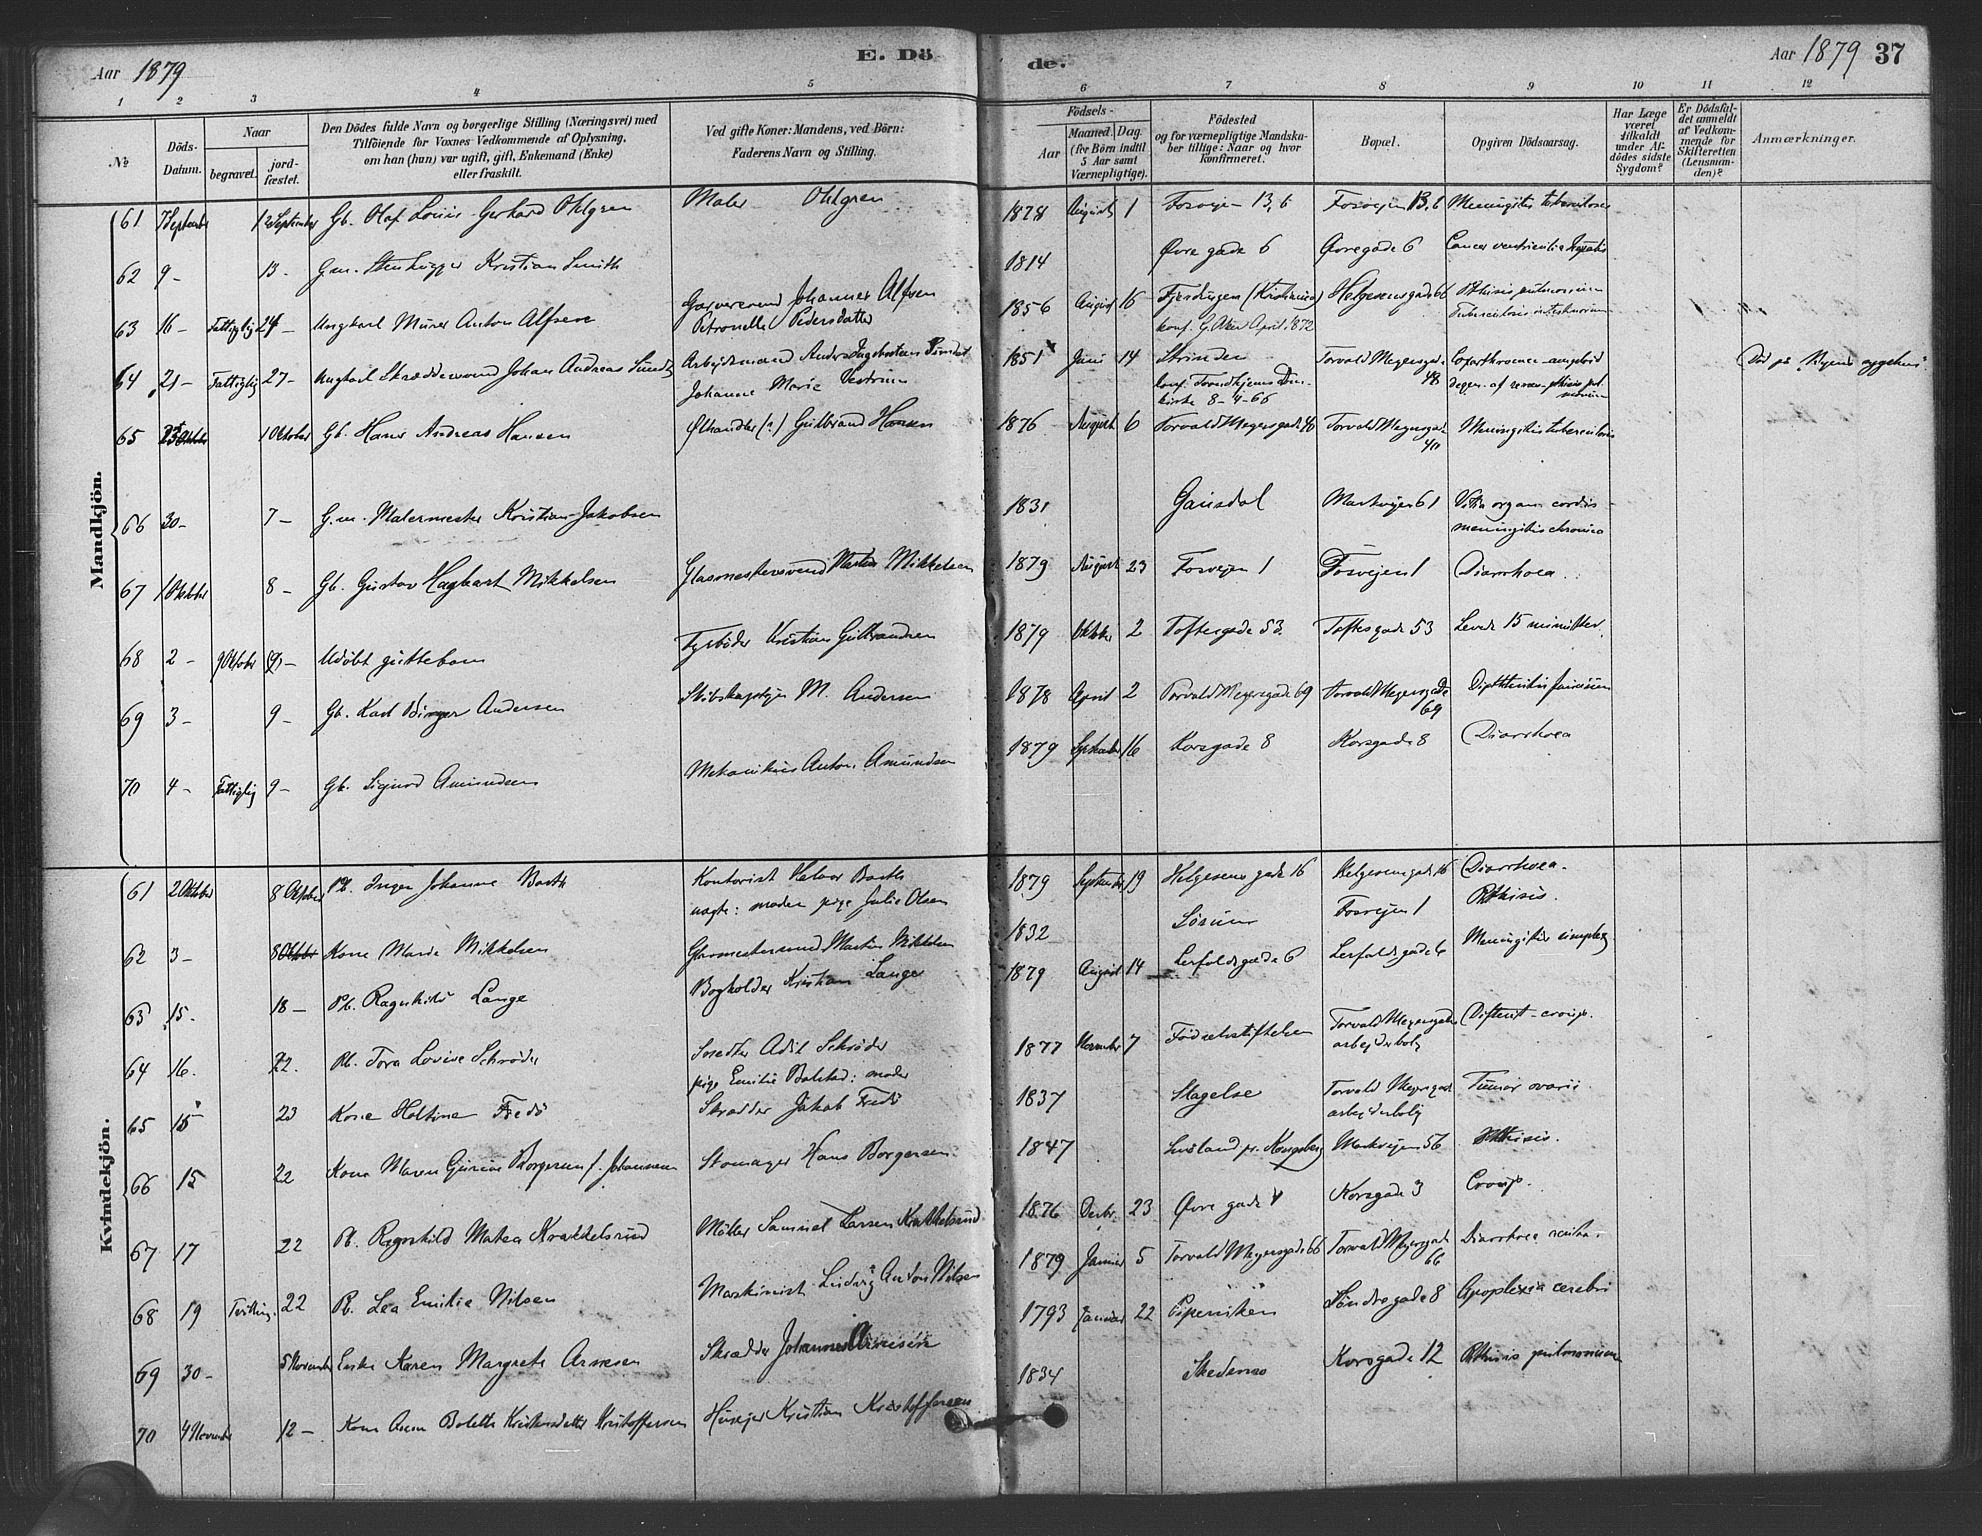 Aar 1879 E. Dö de. Aar 1879 37
1 2 3 4 5 6 7 8 9 10 11 12
№
Döds-Datum.
Naar begravet. jord-fæstet.
Den Dödes fulde Navn og borgerlige Stilling (Næringsvei) med
Tilföiende for Voxnes Vedkommende af Oplysning,
om han (hun) var ugift, gift, Enkemand (Enke)
eller fraskilt.
Ved gifte Koner: Mandens, ved Börn:
Faderens Navn og Stilling.
Födsels-
Aar Maaned. Dag.
(for Börn indtil
5 Aar samt
Værnepligtige).
Födested
og for værnepligtige Mandska-
ber tillige: Naar og hvor
konfirmeret.
Bopæl.
Opgiven Dödsaarsag.
Har Læge
været
tilkaldt
under Af-
dödes sidste
Sygdom?
Er Dödsfal-
det anmeldt
af Vedkom-
mende for
Skifteretten
(Lensman-
den)?
Anmærkninger.
Mandkjön.
61 7 September 12 September Gb. Olaf Louis Gerhard Ohlgren Maler Ohlgren 1878 August 1 Fosvejen 13, 6 Fosvejen 13, 6 Meningitis tuberculosa
62 9 - 13 - G.m. Stenhugger Kristian Smith 1814 Øvregade 6 Øvregade 6 Cancer ventriculi &
63 16 - Fattiglig 24 - Ungkarl Murer Anton Alfsen Johannes Alfsen
Petronelle Pedersdatter 1856 August 16 Fjerdingen (Kristiania)
konf. G. Aker April 1872 Helgesensgade 66 Phthisis pulmonum
Tuberculosis intestinorum
64 21 - Fattiglig 27 - Ungkarl Skræddersvend Johan Andreas Arbejdsmand Anders
Johanne Marie 1851 Juni 14 Strinden
konf. Trondhjems Dom-
kirke 8-4-66 Torvald Meyersgade
48 amyloid
degen. af renes - phthisis pul-
monum Død på Byens sygehus
65 1 Oktober Gb. Hans Andreas Hansen Ølhandler (?) Gulbrand Hansen 1876 August 6 Torvald Meyersgade 40 Torvald Meyersgade
40 Meningitis tuberculosa
66 30 - 7 - G.m. Malermester Kristian Jakobsen 1831 Gausdal Markvejen 61 Vitia organ. cordis
meningitis chronica
67 1 Oktober 8 - Gb. Gustav Hagbart Mikkelsen Glasmestersvend Martin Mikkelsen 1879 August 23 Fosvejen 1 Fosvejen 1 Diarrhoea
68 2 - 9 Oktober (9) - Udøbt guttebarn Fyrbøder Kristian Gulbrandsen 1879 Oktober 2 Toftesgade 53. Toftesgade 53 Levede 15 minutter.
69 3 - 9 - Gb. Karl Birger Andersen Skibskaptejn M. Andersen 1878 April 2 Torvald Meyersgade 69 Torvald Meyersgade
69 Diphtheritis faucium
70 4 - Fattiglig 9 - Gb. Sigurd Amundsen Mekanikus Anton Amundsen 1879 September 16 Korsgade 8 Korsgade 8 Diarrhoea
Kvindekjön.
61 2 Oktober 8 Oktober Pb. Inger Johanne Barth Kontorist Halvor Barth
uægte: moder pige Julie Olsen 1879 September 19 Helgesens gade 16 Helgesensgade 16 Diarrhoea.
62 3 - 8 Oktober Kone Marie Mikkelsen Glasmestersvend Martin Mikkelsen 1832 Sørum Fosvejen 1 Phthisis.
63 15. 18 - Pb. Ragnhild Lange Bogholder Kristian Lange 1879 August 14 Lerfaldsgade 6 Lerfaldsgade 6 Meningitis simplex
64 16. 22. Pb. Tora Lovise Schrøder Adil Schrøder
pige Emilie Bolstad: moder 1877 November 7 Fødselsstiftelsen Torvald Meyersgades
arbejderbolig Difterit - croup.
65 15 23 Kone Holtine Fredø Skrædder Jakob Fredø 1837 Slagelse Torvald Meyersgades
arbejderbolig Tumor ovarii
66 15 22 Kone Maren Gurine Borgersen f. Johannesen Skomager Hans Borgersen 1847 pr. Kongsberg Markvejen 56 Phthisis.
67 17 22 Pb. Ragnhild Matea Krakkelsrud Møller Samuel Larsen Krakkelsrud 1876 Decbr. 23 Øvre gade Korsgade 3 Croup.
68 19 Tvilling. 22 Pb. Lea Emilie Nilsen Maskinist Ludvig Anton Nilsen 1879 Januar 5 Torvald Meyersgade 66 Torvald Meyersgade
66 Diarrhoea
69 30 - 5 November Enke Karen Margrete Arnesen Skrædder Johannes Arnesen 1793 Januar 22 Piperviken Søndregade 8 Apoplexia cerebri
70 4 November 12 - Kone Anne Bolette Kristensdatter Kristoffersen Husejer Kristian Kristoffersen 1834 Skedsmo Korsgade 12 Phthisis pulmonum